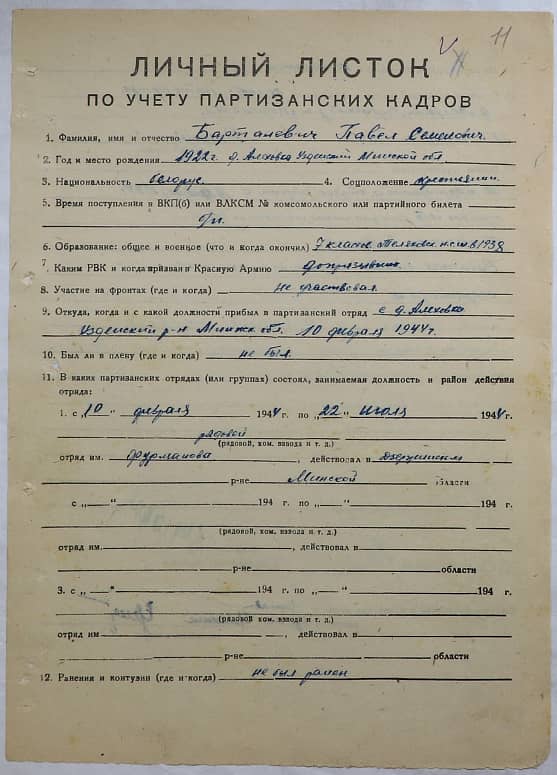 11
ЛИЧНЫЙ ЛИСТОК
ПО УЧЕТУ ПАРТИЗАНСКИХ КАДРОВ
1. Фамилия, имя и отчество Барталевич Павел Семенович.
2. Год и место рождения 1922г. д. Алеховка Узденский Минской обл.
3. Национальность белорус. 4. Соцположение крестьянин.
5. Время поступления в ВКП(б) или ВЛКСМ № комсомольского или партийного билета
б/п.
6. Образование: общее и военное (что и когда окончил) 7 классов н.с.ш. в 1938
7. Каким РВК и когда призван в Красную Армию допризывник.
8. Участие на фронтах (где и когда) не участвовал.
9. Откуда, когда и с какой должности прибыл в партизанский отряд с д. Алеховка
Узденский р-н Минск. обл. 10 февраля 1944г.
10. Был ли в плену (где и когда) не был.
11. В каких партизанских отрядах (или группах) состоял, занимаемая должность и район действия
отряда:
1. с „10“ февраля 1944 г. по „22“ июля 1944 г.
рядовой
(рядовой, ком. взвода и т. д.)
отряд им. Фурманова, действовал в Дзержинском
р-не Минской области
с „ “ 194 г. по „ “ 194 г.
(рядовой, ком. взвода и т. д.)
отряд им. , действовал в
р-не области
3. с „ “ 194 г. по „ “ 194 г.
(рядовой, ком. взвода и т. д.)
отряд им. , действовал в
р-не области
12. Ранения и контузии (где и когда) не был ранен